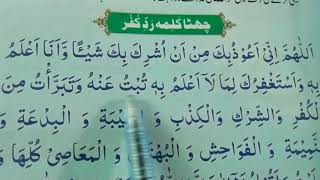 چھٹا کلمہ ردِّ کُفْر
اَللّٰهُمَّ اِنِّیْ اَعُوْذُ بِكَ مِنْ اَنْ اُشْرِكَ بِكَ شَیْـًٔا وَّ اَنَا اَعْلَمُ
بِهٖ وَ اَسْتَغْفِرُكَ لِمَا لَاۤ اَعْلَمُ بِهٖ تُبْتُ عَنْهُ وَ تَبَرَّاْتُ مِنَ
الْكُفْرِ وَ الشِّرْكِ وَ الْكِذْبِ وَ الْغِیْبَةِ وَ الْبِدْعَةِ وَ
النَّمِیْمَةِ وَ الْفَوَاحِشِ وَ الْمَعَاصِیْ كُلِّهَا